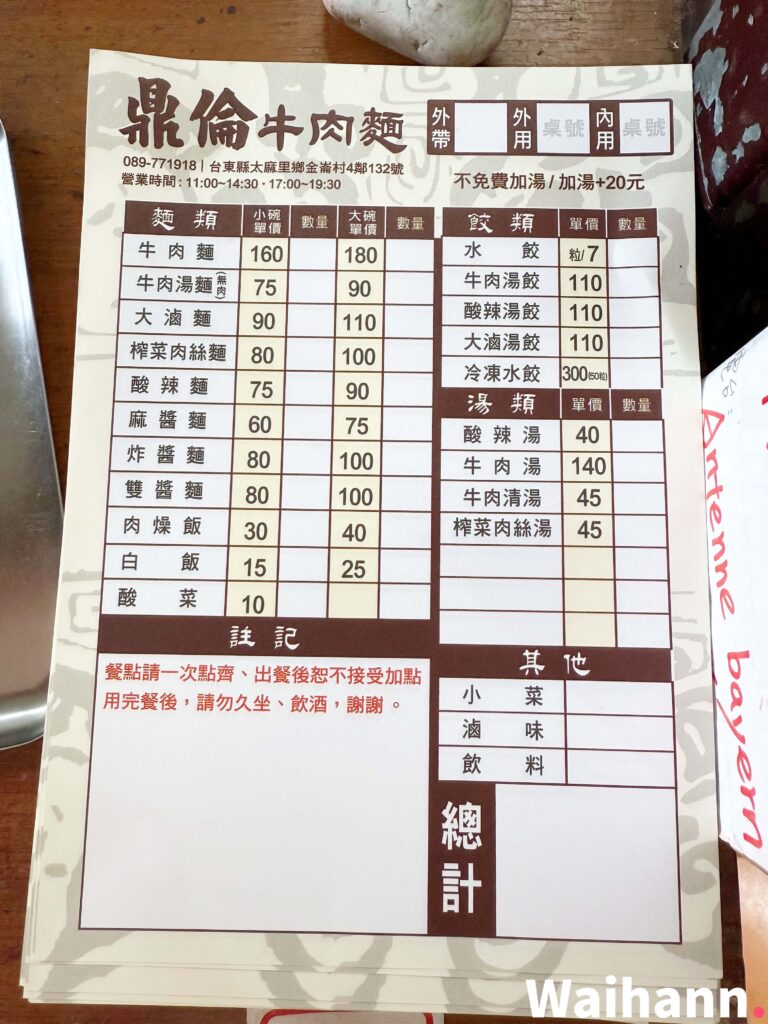 鼎倫牛肉麵
外帶
外用 桌號
內用 桌號
089-771918 | 台東縣太麻里鄉金崙村4鄰132號
營業時間:11:00~14:30·17:00~19:30
不免費加湯/加湯+20元
麵類 小碗單價 數量 大碗單價 數量
牛肉麵 160 180
牛肉湯麵(無肉) 75 90
大滷麵 90 110
榨菜肉絲麵 80 100
酸辣麵 75 90
麻醬麵 60 75
炸醬麵 80 100
雙醬麵 80 100
肉燥飯 30 40
白飯 15 25
酸菜 10
餃類 單價 數量
水餃 粒/7
牛肉湯餃 110
酸辣湯餃 110
大滷湯餃 110
冷凍水餃 300(50粒)
湯類 單價 數量
酸辣湯 40
牛肉湯 140
牛肉清湯 45
榨菜肉絲湯 45
註記
餐點請一次點齊、出餐後恕不接受加點
用完餐後,請勿久坐、飲酒,謝謝。
其他
小菜
滷味
飲料
總計
Antenne bayern
Waihann.